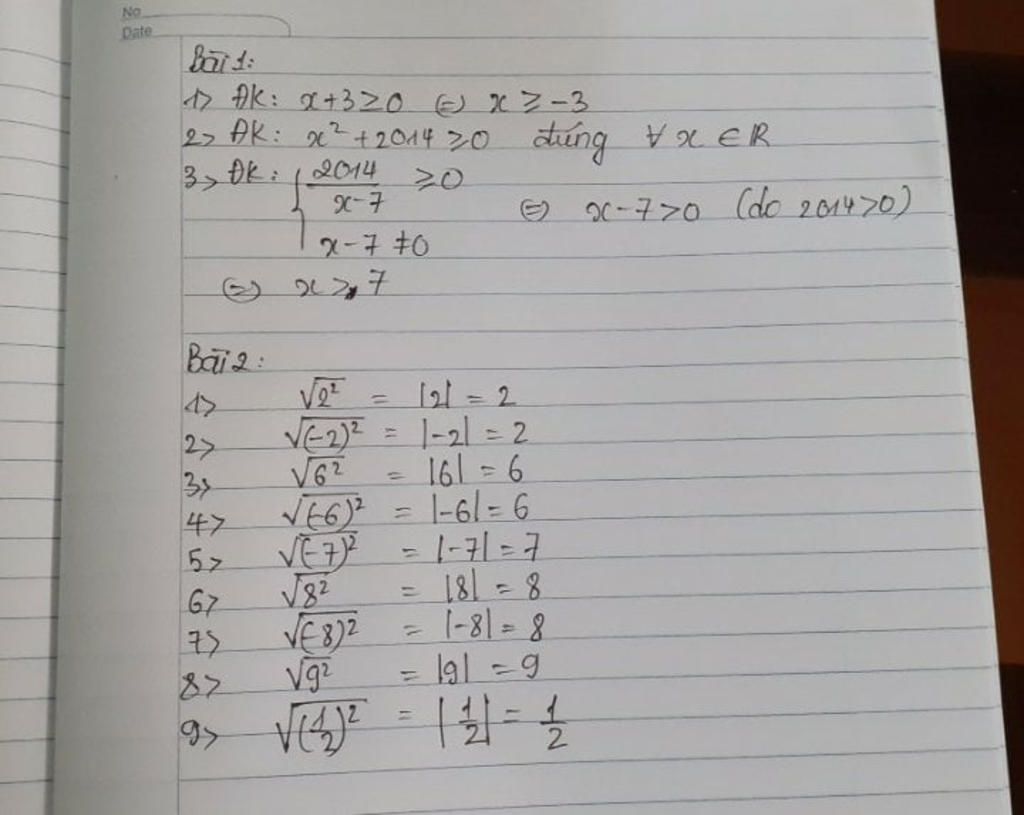 No
Date
Bài 1:
1> ĐK: x+3≥0 ⇔ x ≥ -3
2> ĐK: x² + 2014 ≥0 đúng ∀ x ∈ R
3> ĐK: { 2014/(x-7) ≥0
x-7 ≠0 ⇔ x-7>0 (do 2014>0)
⇔ x > 7
Bài 2:
1> √2² = |2| = 2
2> √(-2)² = |-2| = 2
3> √6² = |6| = 6
4> √(-6)² = |-6| = 6
5> √(-7)² = |-7| = 7
6> √8² = |8| = 8
7> √(-8)² = |-8| = 8
8> √9² = |9| = 9
9> √(1/2)² = |1/2| = 1/2